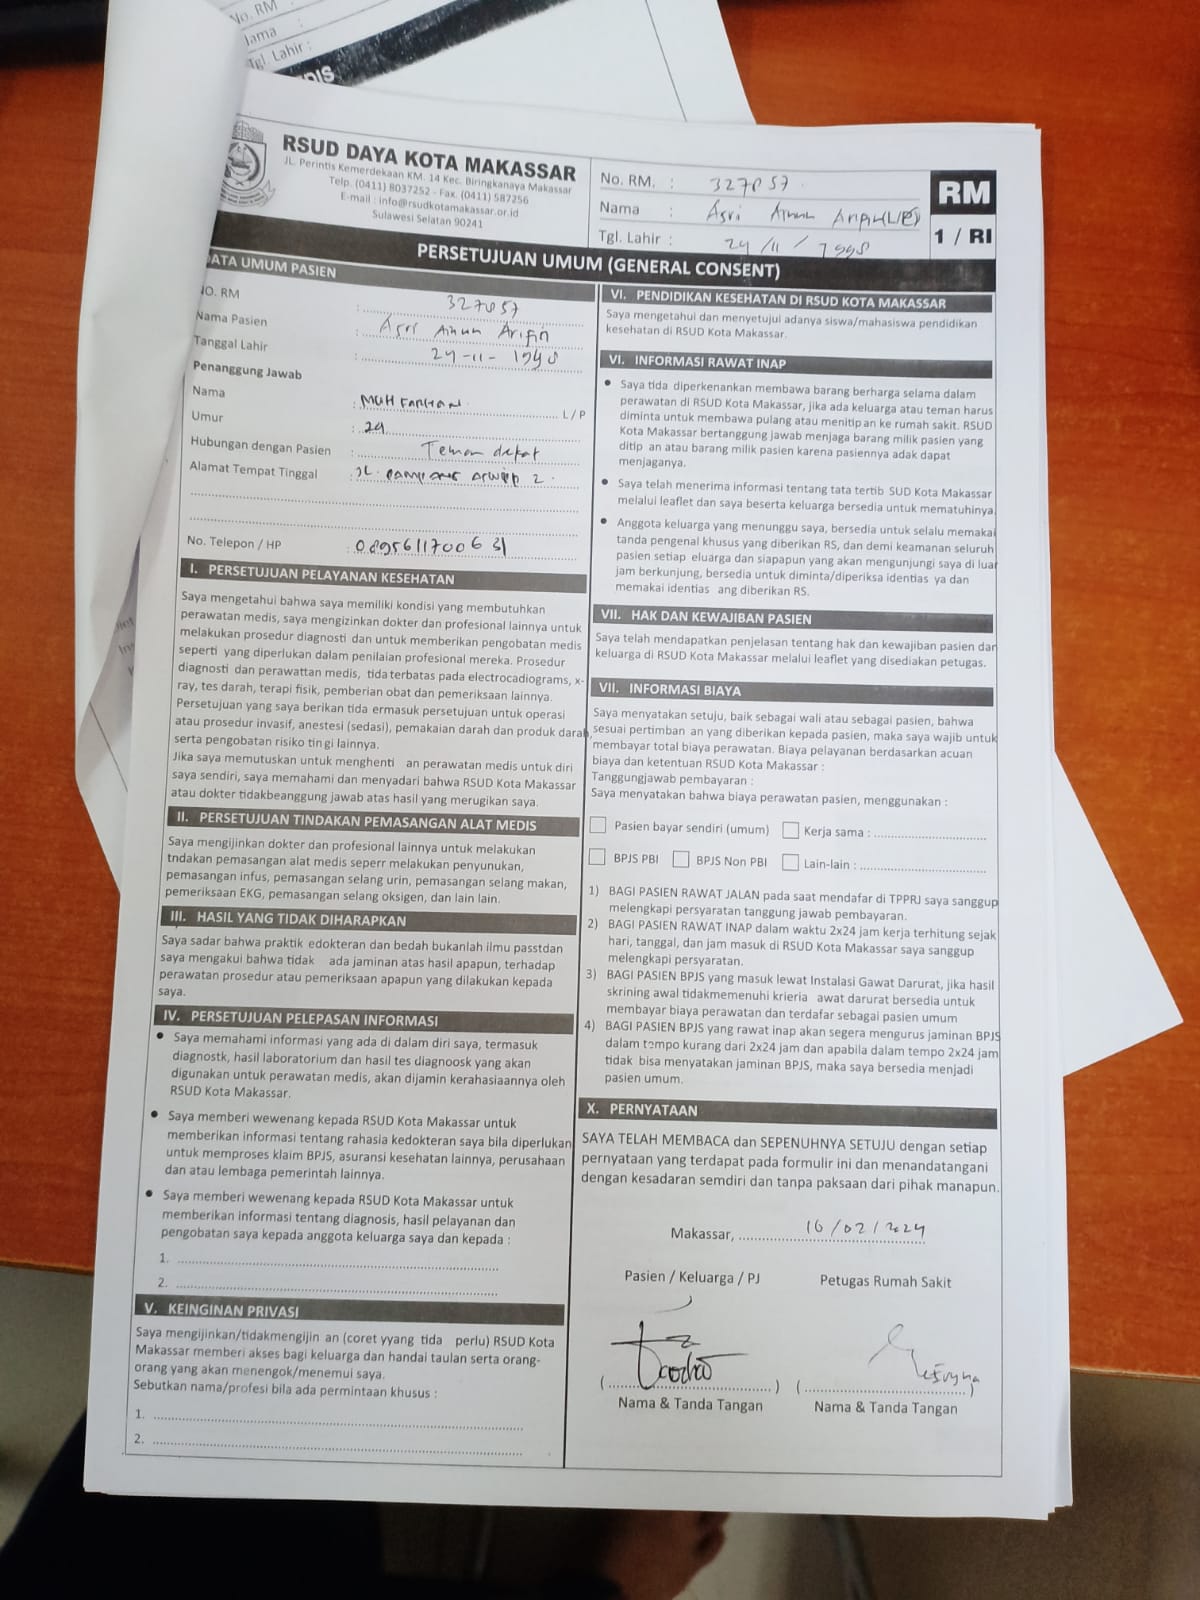 No. RM :
Nama :
Tgl. Lahir :
RSUD DAYA KOTA MAKASSAR
JL. Perintis Kemerdekaan KM. 14 Kec. Biringkanaya Makassar
Telp. (0411) 8037252 - Fax. (0411) 587256
E-mail : info@rsudkotamakassar.or.id
Sulawesi Selatan 90241
No. RM. : 327057
Nama : Asri Ainun Arifin (L/P)
Tgl. Lahir : 24/11/1998
RM
1 / RI
PERSETUJUAN UMUM (GENERAL CONSENT)
DATA UMUM PASIEN
NO. RM : 327057
Nama Pasien : Asri Ainun Arifin
Tanggal Lahir : 24-11-1998
Penanggung Jawab
Nama : MUH Farhan L / P
Umur : 24
Hubungan dengan Pasien : Teman dekat
Alamat Tempat Tinggal : JL. 2
No. Telepon / HP : 089561170063
I. PERSETUJUAN PELAYANAN KESEHATAN
Saya mengetahui bahwa saya memiliki kondisi yang membutuhkan
perawatan medis, saya mengizinkan dokter dan profesional lainnya untuk
melakukan prosedur diagnosti dan untuk memberikan pengobatan medis
seperti yang diperlukan dalam penilaian profesional mereka. Prosedur
diagnosti dan perawattan medis, tida terbatas pada electrocadiograms, x-
ray, tes darah, terapi fisik, pemberian obat dan pemeriksaan lainnya.
Persetujuan yang saya berikan tida ermasuk persetujuan untuk operasi
atau prosedur invasif, anestesi (sedasi), pemakaian darah dan produk darah,
serta pengobatan risiko tin gi lainnya.
Jika saya memutuskan untuk menghenti an perawatan medis untuk diri
saya sendiri, saya memahami dan menyadari bahwa RSUD Kota Makassar
atau dokter tidakbeanggung jawab atas hasil yang merugikan saya.
II. PERSETUJUAN TINDAKAN PEMASANGAN ALAT MEDIS
Saya mengijinkan dokter dan profesional lainnya untuk melakukan
tndakan pemasangan alat medis seperr melakukan penyunukan,
pemasangan infus, pemasangan selang urin, pemasangan selang makan,
pemeriksaan EKG, pemasangan selang oksigen, dan lain lain.
III. HASIL YANG TIDAK DIHARAPKAN
Saya sadar bahwa praktik edokteran dan bedah bukanlah ilmu passtdan
saya mengakui bahwa tidak ada jaminan atas hasil apapun, terhadap
perawatan prosedur atau pemeriksaan apapun yang dilakukan kepada
saya.
IV. PERSETUJUAN PELEPASAN INFORMASI
• Saya memahami informasi yang ada di dalam diri saya, termasuk
diagnostk, hasil laboratorium dan hasil tes diagnoosk yang akan
digunakan untuk perawatan medis, akan dijamin kerahasiaannya oleh
RSUD Kota Makassar.
• Saya memberi wewenang kepada RSUD Kota Makassar untuk
memberikan informasi tentang rahasia kedokteran saya bila diperlukan
untuk memproses klaim BPJS, asuransi kesehatan lainnya, perusahaan
dan atau lembaga pemerintah lainnya.
• Saya memberi wewenang kepada RSUD Kota Makassar untuk
memberikan informasi tentang diagnosis, hasil pelayanan dan
pengobatan saya kepada anggota keluarga saya dan kepada :
1.
2.
V. KEINGINAN PRIVASI
Saya mengijinkan/tidakmengijin an (coret yyang tida perlu) RSUD Kota
Makassar memberi akses bagi keluarga dan handai taulan serta orang-
orang yang akan menengok/menemui saya.
Sebutkan nama/profesi bila ada permintaan khusus :
1.
2.
VI. PENDIDIKAN KESEHATAN DI RSUD KOTA MAKASSAR
Saya mengetahui dan menyetujui adanya siswa/mahasiswa pendidikan
kesehatan di RSUD Kota Makassar.
VI. INFORMASI RAWAT INAP
• Saya tida diperkenankan membawa barang berharga selama dalam
perawatan di RSUD Kota Makassar, jika ada keluarga atau teman harus
diminta untuk membawa pulang atau menitip an ke rumah sakit. RSUD
Kota Makassar bertanggung jawab menjaga barang milik pasien yang
ditip an atau barang milik pasien karena pasiennya adak dapat
menjaganya.
• Saya telah menerima informasi tentang tata tertib SUD Kota Makassar
melalui leaflet dan saya beserta keluarga bersedia untuk mematuhinya.
• Anggota keluarga yang menunggu saya, bersedia untuk selalu memakai
tanda pengenal khusus yang diberikan RS, dan demi keamanan seluruh
pasien setiap eluarga dan siapapun yang akan mengunjungi saya di luar
jam berkunjung, bersedia untuk diminta/diperiksa identias ya dan
memakai identias ang diberikan RS.
VII. HAK DAN KEWAJIBAN PASIEN
Saya telah mendapatkan penjelasan tentang hak dan kewajiban pasien dan
keluarga di RSUD Kota Makassar melalui leaflet yang disediakan petugas.
VII. INFORMASI BIAYA
Saya menyatakan setuju, baik sebagai wali atau sebagai pasien, bahwa
sesuai pertimban an yang diberikan kepada pasien, maka saya wajib untuk
membayar total biaya perawatan. Biaya pelayanan berdasarkan acuan
biaya dan ketentuan RSUD Kota Makassar :
Tanggungjawab pembayaran :
Saya menyatakan bahwa biaya perawatan pasien, menggunakan :
Pasien bayar sendiri (umum) Kerja sama :
BPJS PBI BPJS Non PBI Lain-lain :
1) BAGI PASIEN RAWAT JALAN pada saat mendafar di TPPRJ saya sanggup
melengkapi persyaratan tanggung jawab pembayaran.
2) BAGI PASIEN RAWAT INAP dalam waktu 2x24 jam kerja terhitung sejak
hari, tanggal, dan jam masuk di RSUD Kota Makassar saya sanggup
melengkapi persyaratan.
3) BAGI PASIEN BPJS yang masuk lewat Instalasi Gawat Darurat, jika hasil
skrining awal tidakmemenuhi krieria awat darurat bersedia untuk
membayar biaya perawatan dan terdafar sebagai pasien umum
4) BAGI PASIEN BPJS yang rawat inap akan segera mengurus jaminan BPJS
dalam tempo kurang dari 2x24 jam dan apabila dalam tempo 2x24 jam
tidak bisa menyatakan jaminan BPJS, maka saya bersedia menjadi
pasien umum.
X. PERNYATAAN
SAYA TELAH MEMBACA dan SEPENUHNYA SETUJU dengan setiap
pernyataan yang terdapat pada formulir ini dan menandatangani
dengan kesadaran semdiri dan tanpa paksaan dari pihak manapun.
Makassar, 16/02/2024
Pasien / Keluarga / PJ Petugas Rumah Sakit
( ) ( )
Nama & Tanda Tangan Nama & Tanda Tangan